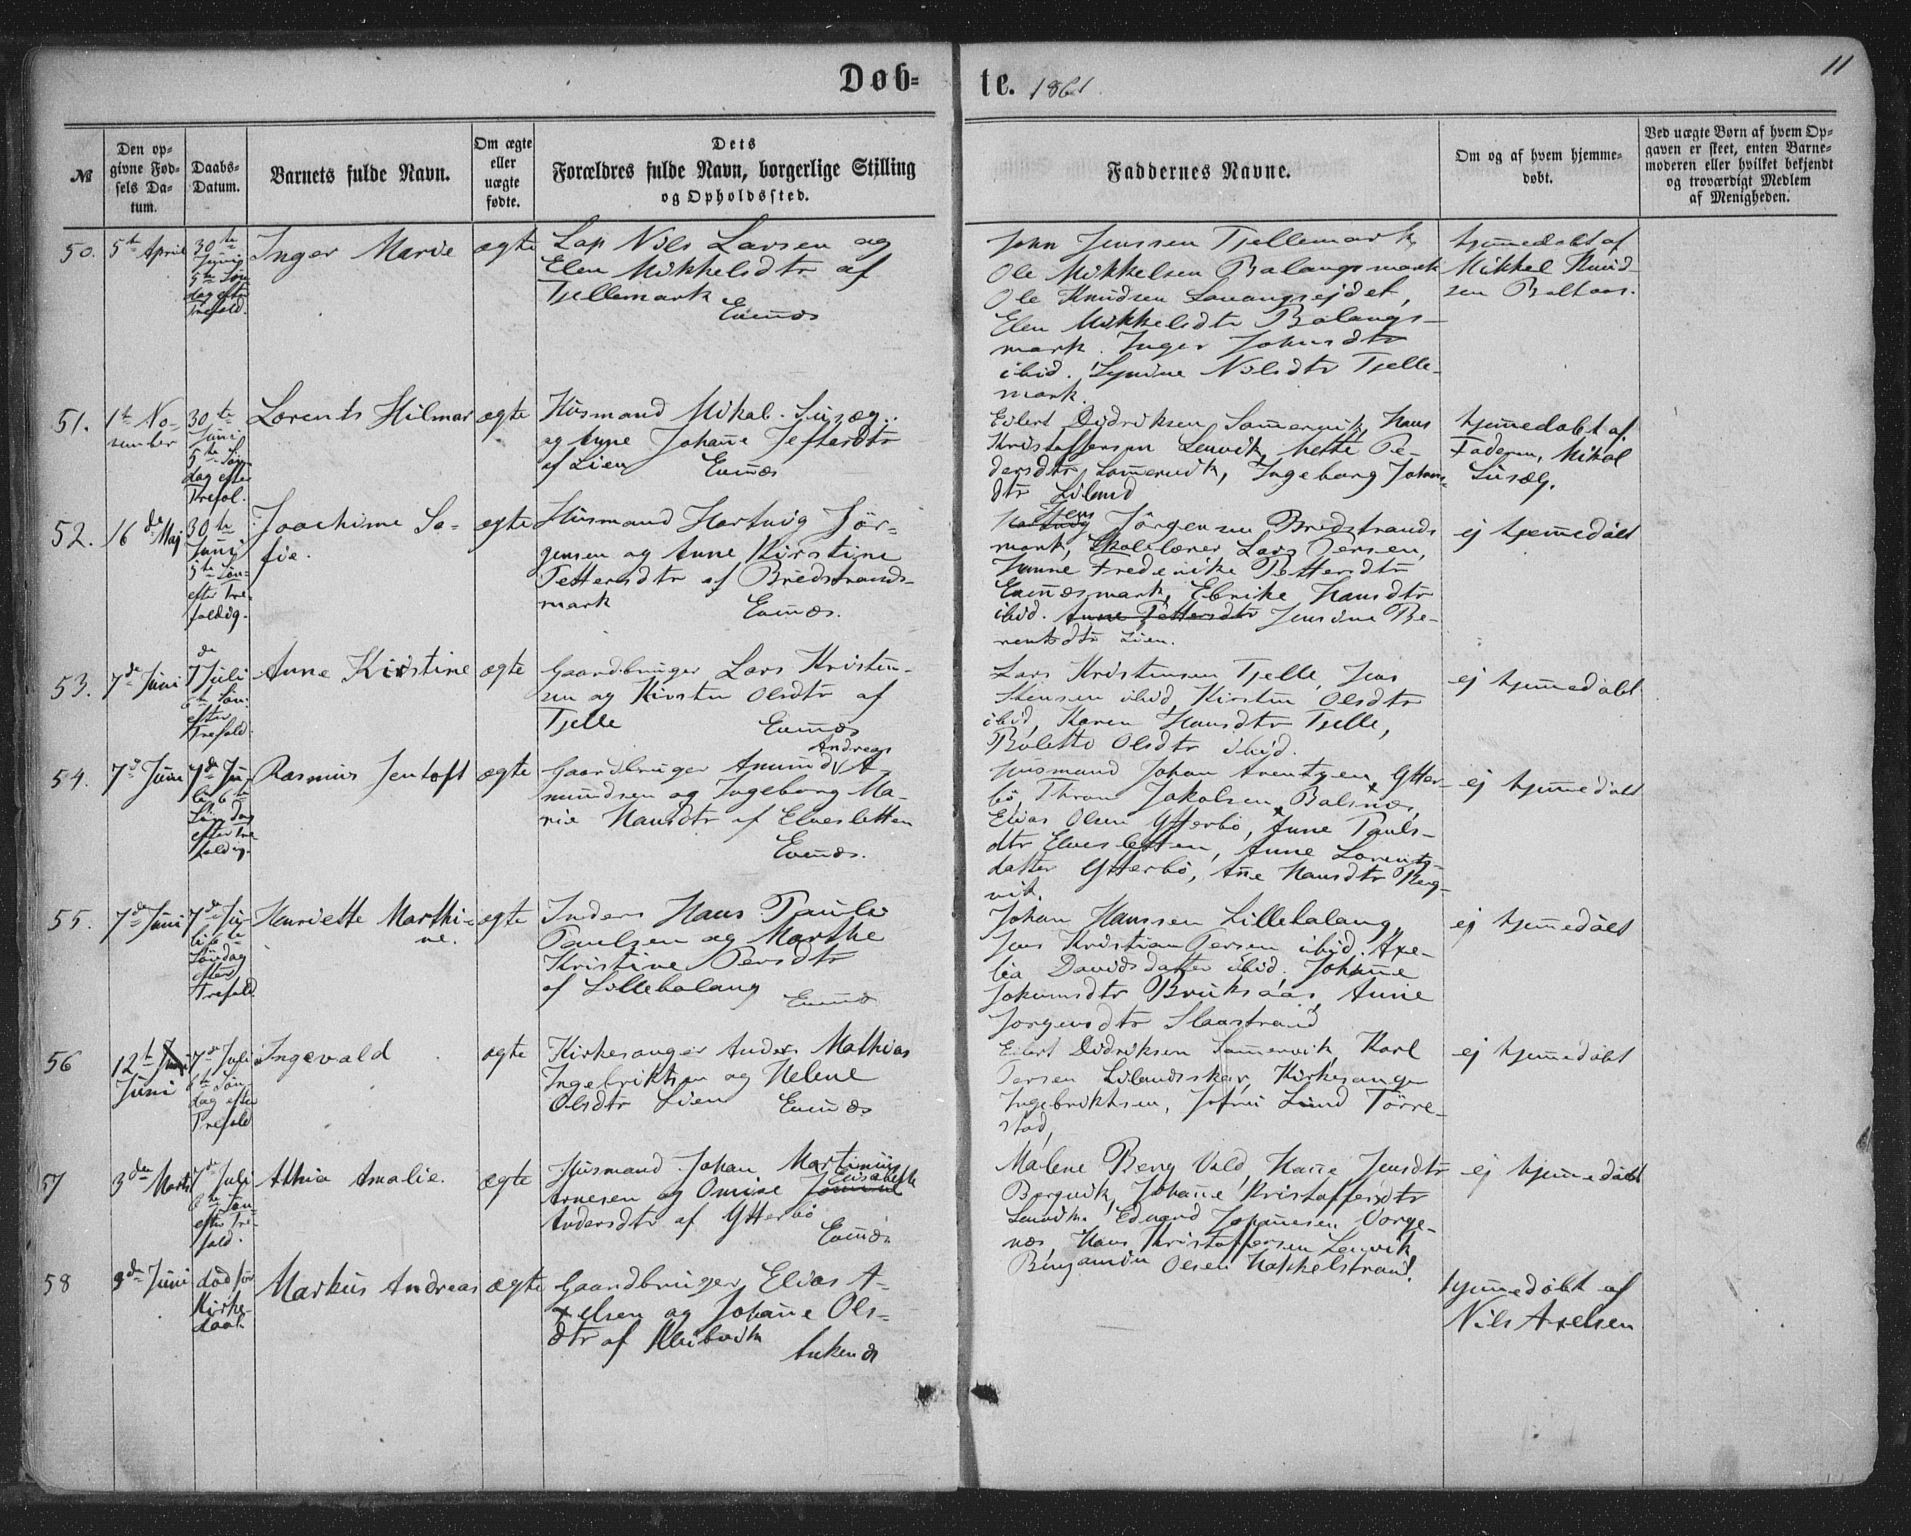 Døb-
te. 1861
11
№
Den op-
givne Fød-
sels Da-
tum.
Daabs-
Datum.
Barnets fulde Navn.
Om ægte
eller
uægte
fødte.
Dets
Forældres fulde Navn, borgerlige Stilling
og Opholdssted.
Faddernes Navne.
Om og af hvem hjemme-
døbt.
Ved uægte Børn af hvem Op-
gaven er skeet, enten Barne-
moderen eller hvilket bekjendt
og troværdigt Medlem
af Menigheden.
50.
5te April
30te
Junij
5te Søn
dag efter
Trefold.
Inger Marie
ægte
Lap Nils Larsen og
Elen Mikkelsdtr af
Tjellemark
Evenæs
John Jenssen Tjellemark
Ole Mikkelsen Balangsmark
Ole Knudsen Lavangsejdet,
Elen Mikkelsdtr Balangs-
mark. Inger Johnsdtr
ibid. Nilsdtr Tjelle-
mark.
hjemmedøbt af
Mikkel Knud-
sen Boltaas.
51.
1te No-
vember
30te
Juni
5te Søn
dag efter
Trefol.
Lorents Hilmar
ægte
Husmand Mikal
og Johanne Jeftasdtr
af Lien Evenæs
Eilert Didriksen Sommervik, Hans
Kristoffersen Lenvik, Mette Pe-
dersdtr Sommervik, Ingeborg Johans-
dtr Liland
hjemmedøbt af
Faderen, Mikal
52.
16de Maj
30te
Junij
5te Søn-
efter Tre-
foldig.
Joachime So-
fie.
ægte
Husmand Hartvig Jør-
gensen og Anne Kirstine
Pettersdtr af Bredstrands-
mark Evenæs.
Jens
Hartvig Jörgensen Bredstrands
mark, Skolelærer Lars Persen,
Hanne Frederikke Pettersdtr
Evenæsmark, Elrike Hansdtr
ibid. Anne Pettersdtr Jensine Be-
rentsdtr Lien.
ej hjemmedøbt
53.
7de Juni
7de Juli
6te Søn.
efter
Trefold.
Anne Kirstine
ægte
Gaardbruger Lars Kristen-
sen og Kirsten Olsdtr af
Tjelle Evenæs
Lars Kristensen Tjelle, Jens
Stensen ibid, Kirsten Olsdtr
ibid, Karen Hansdtr Tjelle,
Boletto Olsdtr ibid.
ej hjemmedøbt
54.
7de Juni
7de Ju-
li 6te
Søndag
efter Tre
foldig.
Rasmus Jentoft
ægte
Andreas
Gaardbruger Amund A-
mundsen og Ingeborg Ma-
rie Hansdtr af Elvesletten
Evenæs.
Husmand Johan Arentsen, Ytter-
bö, Thron Jakobsen Balsnæs,
Elias Olsen Ytterbö, Anne Pauls-
dtr Elvesletten, Anne Lorents-
datter Ytterbö, Ane Hansdtr Berg-
vik.
ej hjemmedøbt
55.
7de Juni
7de Ju
li 6te
Søndag
efter
Trefold
Henriette Marthi-
ne.
ægte
Inders Hans Paul
Paulsen og Marthe
Kristine Persdtr
af Lillebalang
Evenæs
Johan Hanssen Lillebalang
Jens Kristian Persen ibid. Axe-
lia Davidsdatter ibid. Johanne
Johansdtr Bruksaas, Anne
Jorgensdtr Slaastrand
ej hjemmedøbt
56
12te
Juni
7de Juli
6te Søn-
dag efter
Trefold
Ingevald
ægte
Kirkesanger Anders Mathias
Ingebriktsen og Helene
Olsdtr Lien Evenæs
Eilert Didriksen Sommervik, Karl
Persen Lilandsskar, Kirkesanger
Ingebriktsen, Lund Törre-
stad,
ej hjemmedøbt
57
3den Marts
7de Juli
6te Søn-
efter Tre-
fold.
Althia Amalie.
ægte
Husmand Johan Martinus
Elisabeth
Arnesen og Omine
Andersdtr af Ytterbö
Evenæs
Malene Berg Vold, Hanne Jensdtr
Bergvik, Johanne Kristoffersdtr
Lenvik. Edvard Johannesen Vorge-
næs, Hans Kristoffersen Lenvik
Benjamin Olsen Hakkelstrand.
ej hjemmedøbt
58
3de Juni
død før
Kirke-
daab
Markus Andreas
ægte
Gaardbruger Elias A-
xelsen og Johanne Ols-
dtr af
Ankenæs
hjemmedøbt af
Nils Axelsen